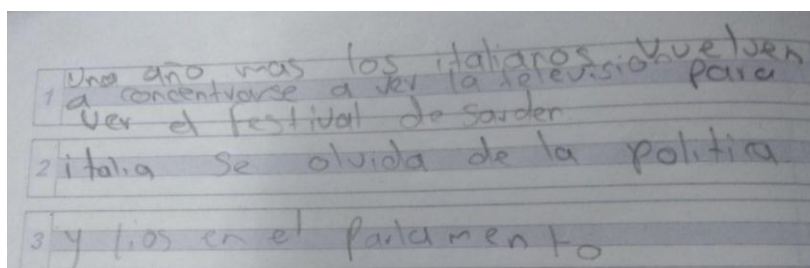 Una año mas los italianos vuelven
1 a concentrarse a ver la television para
ver el festival de Sarder
2 italia se olvida de la politica
3 y lios en el Parlamento